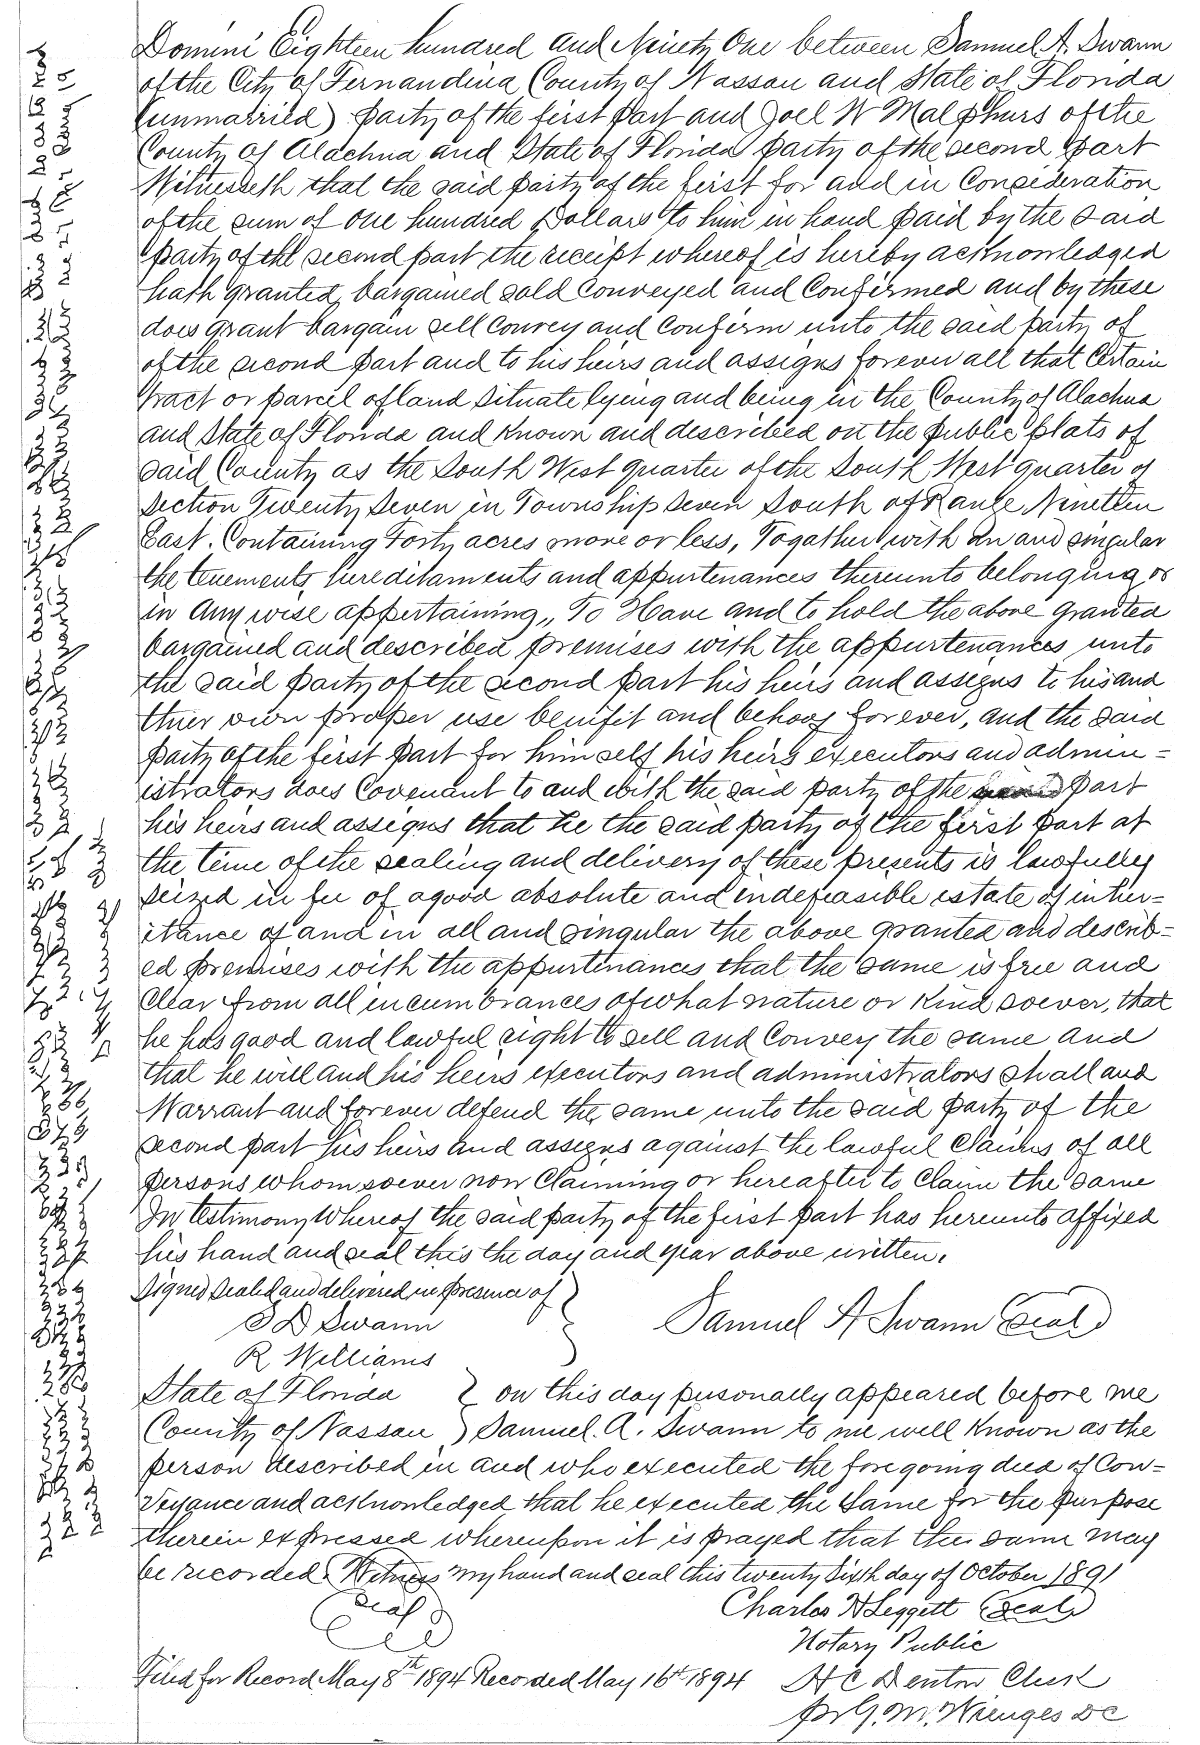 Domini Eighteen hundred and Ninety One between Samuel A. Swann
of the City of Fernandina County of Nassau and State of Florida
(unmarried) party of the first part and Joel W Malphurs of the
County of Alachua and State of Florida party of the second part
Witnesseth that the said party of the first for and in Consideration
of the sum of One hundred Dollars to him in hand paid by the said
party of the second part the receipt whereof is hereby acknowledged
hath granted, bargained sold conveyed and Confirmed and by these
does grant bargain sell Convey and Confirm unto the said party of
of the second part and to his heirs and assigns forever all that Certain
tract or parcel of land situate lying and being in the County of Alachua
and State of Florida and Known and described on the public plats of
said County as the South West quarter of the South West quarter of
Section Twenty Seven in Township seven South of Range Nineteen
East. Containing Forty acres more or less, Togather with an and singular
the tenements, hereditaments and appurtenances thereunto belonging or
in Any wise appertaining,, To Have and to hold the above granted
bargained and described premises with the appurtenances unto
the said party of the second part his heirs and assigns to his and
thier own proper use benifit and behoof forever, and the said
party of the first part for himself his heirs executors and admin=
istrators does Covenant to and with the said party of the part
his heirs and assigns that he the said party of the first part at
the time of the sealing and delivery of these presents is lawfully
seized in fee of a good absolute and indefeasible estate of inher=
itance of and in all and singular the above granted and describ=
ed premises with the appurtenances that the same is free and
Clear from all incumbrances of what nature or Kind soever, that
he has good and lawful right to sell and Convey the same and
that he will and his heirs executors and administrators shall and
Warrant and forever defend the same unto the said party of the
second part his heirs and assigns against the lawful Claims of all
persons whomsoever now Claiming or hereafter to Claim the same
In testimony Whereof the said party of the first part has hereunto affixed
his hand and seal this the day and year above written.
Signed Sealed and delivered in presence of
S D Swann
Samuel A Swann Seal
R Williams
State of Florida } on this day pesonally appeared before me
County of Nassau ) Samuel. A. Swann to me well Known as the
person described in and who executed the foregoing deed of Con=
veyance and acknowledged that he executed the same for the purpose
therein expressed whereupon it is prayed that the same may
be recorded. Witness my hand and seal this twenty sixth day of October 1891
Seal
Charles H Leggett Seal
Notary Public
Filed for Record May 8th 1894 Recorded May 16th 1894
H C Denton Clerk
pr G. M. Wienges DC